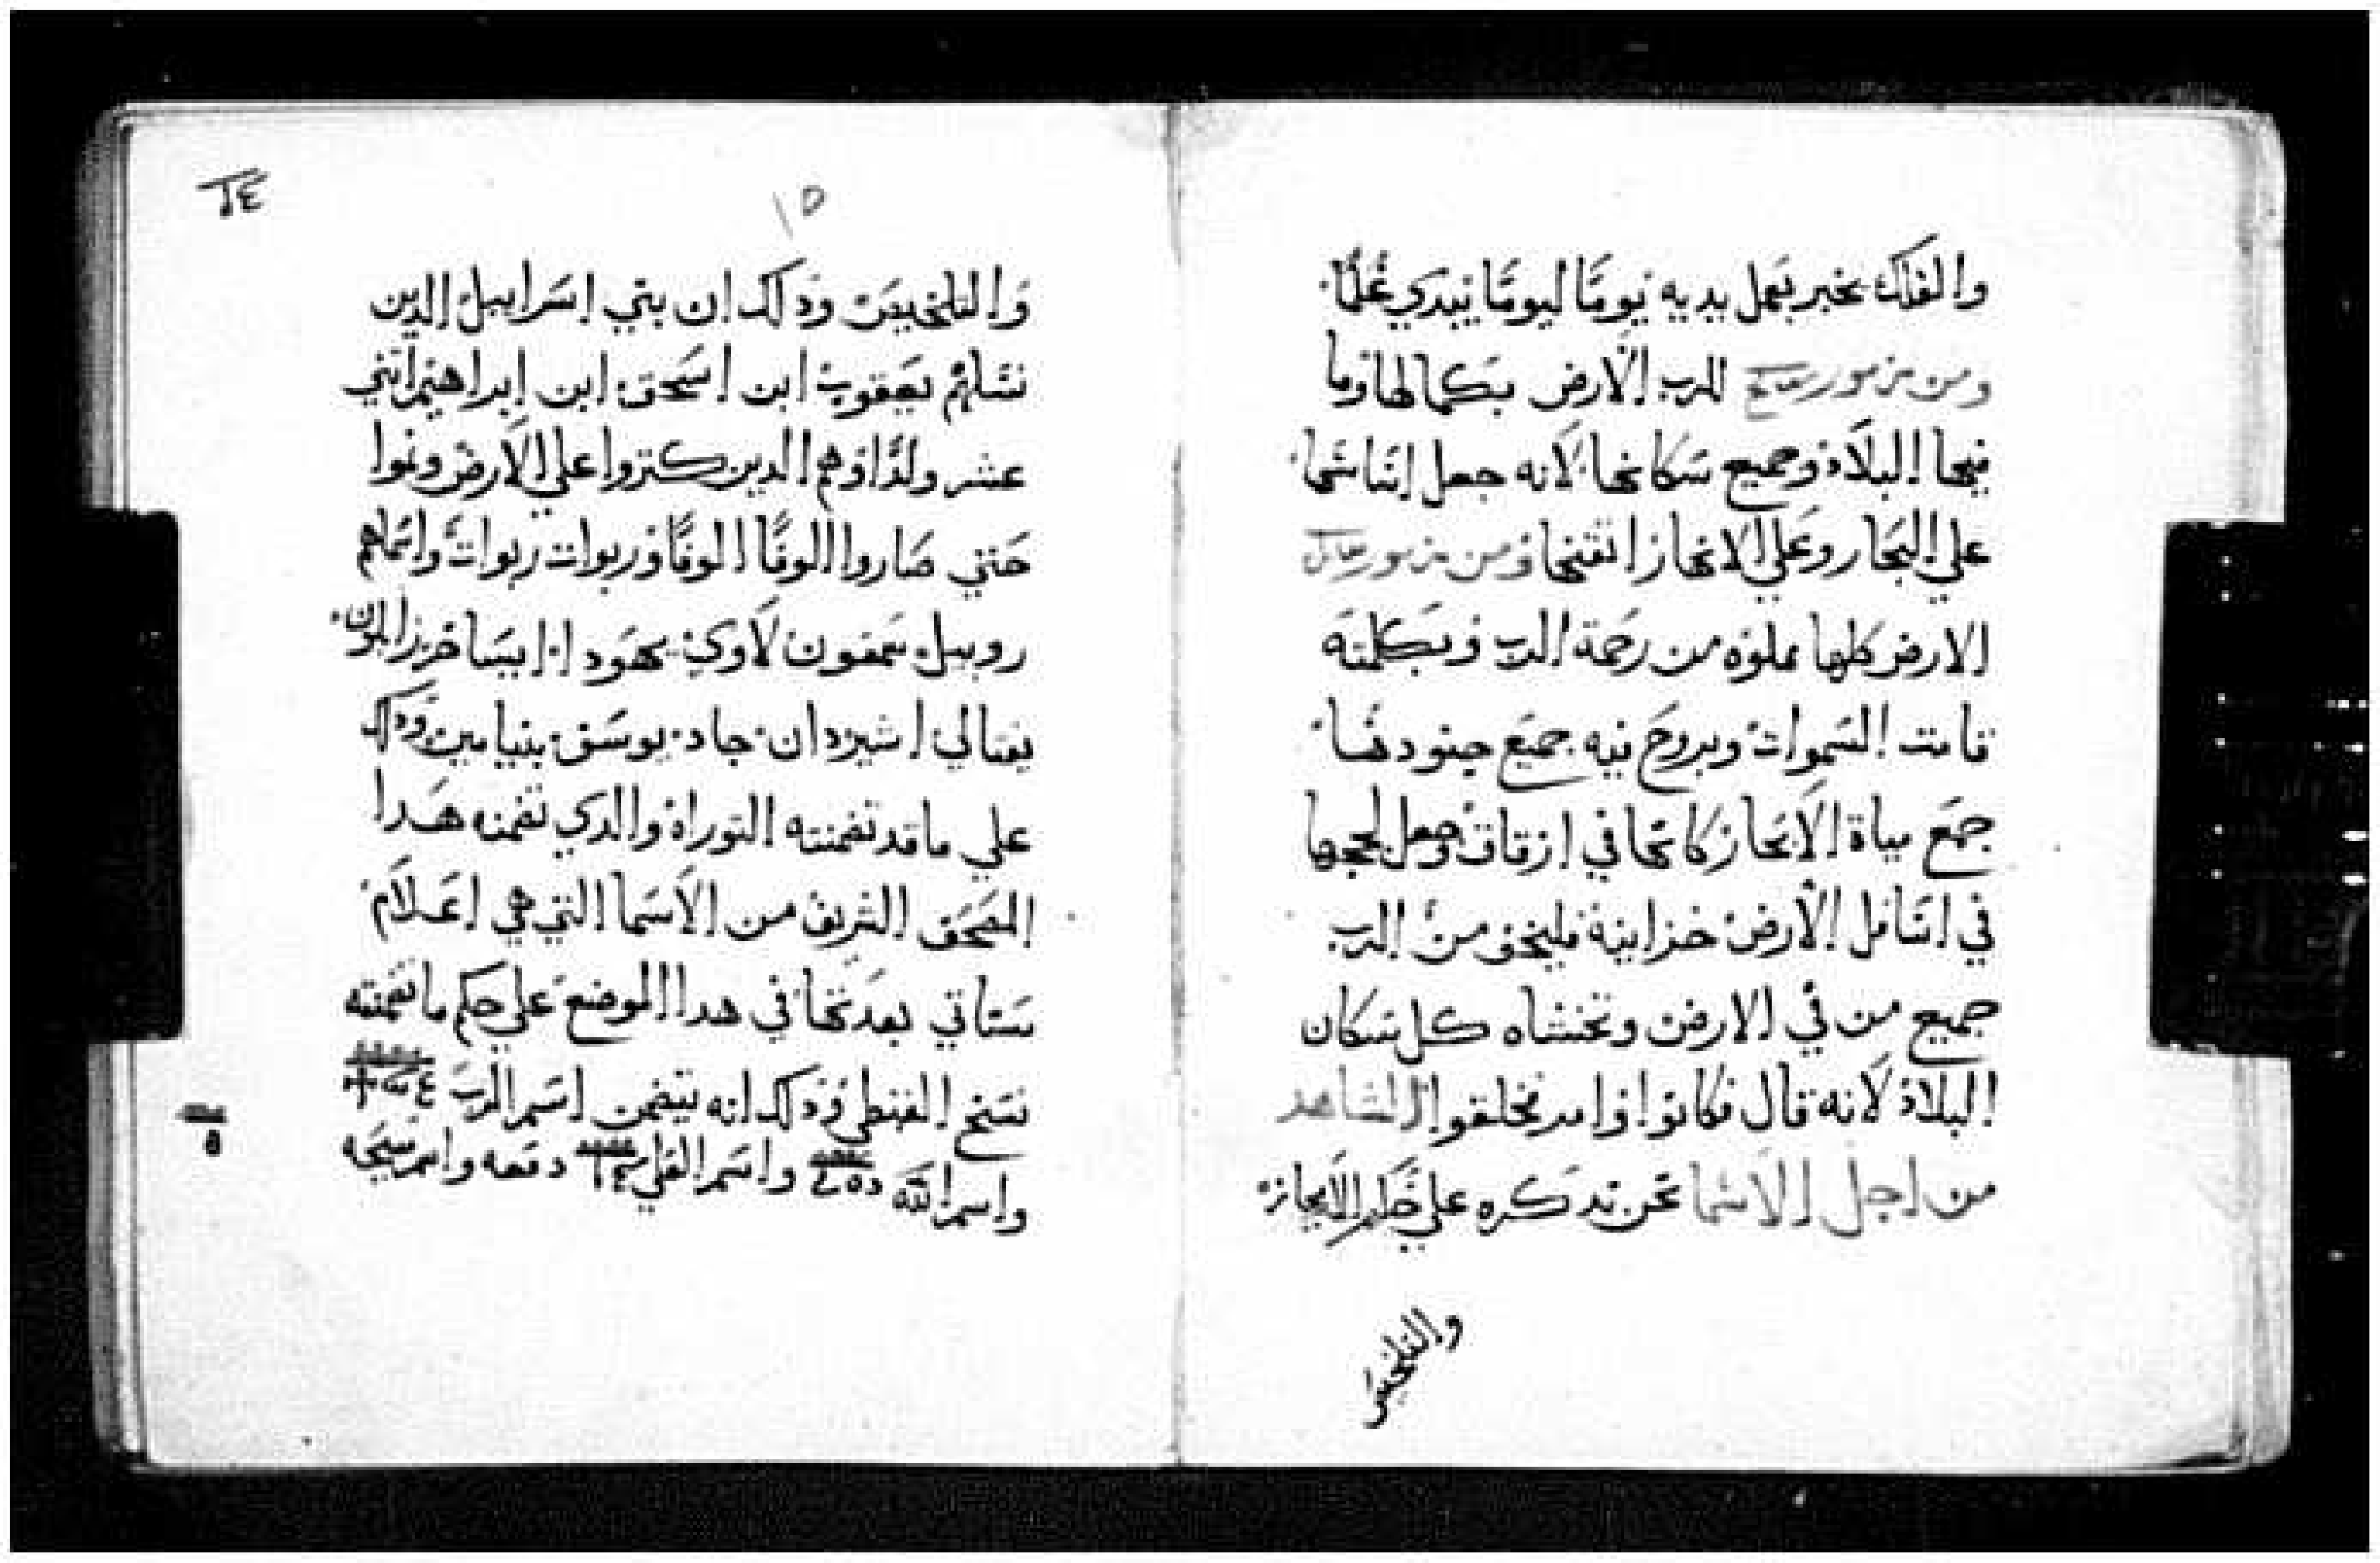 والفلك يخبر بعمل يديه يومًا ليومًا يبدي عُلمًا
ومن مزمور للرب الارض بكمالها وما
فيها البلاد وجميع سكانها لانه جعل اساسها
علي البحار وعلي الانهار اتقنها ومن مزمور
الارض كلها مملوه من رحمة الرب وبكلمته
قامت السموات وبروح فيه جميع جنودها
جمع مياة الابحار كانها في ازقاق وجعل لججها
في اسافل الارض خزاينه فليخف من الرب
جميع من في الارض وتخشاه كل سكان
البلاد لانه قال فكانوا وامر فخلقوا الشاهد
من اجل الاسما نحن ندكره علي حكم الايجاز
والتلخيص
١٥
والتلخيص ودلك ان بني اسراييل الدين
نسلهم يعقوب ابن اسحق ابن ابراهيم اتني
عشر ولدًا وهم الدين كتروا علي الارض ونموا
حتي صاروا الوفًا الوفًا وربوات ربوات واسماهم
روبيل سمعون لاوي يهودا ايساخر زابلون
يفتالي اشير دان جاد يوسف بنيامين ودلك
علي ما قد تضمنته التوراة والدي تضمنه هدا
المصحف الشريف من الاسما التي هي اعلام
ستاتي بعدتها في هدا الموضع علي حكم ما تضمنته
نسخ القبطي ودلك انه يتضمن اسم الرب
واسم الله واسم العلي دفعه واسم مسيحه